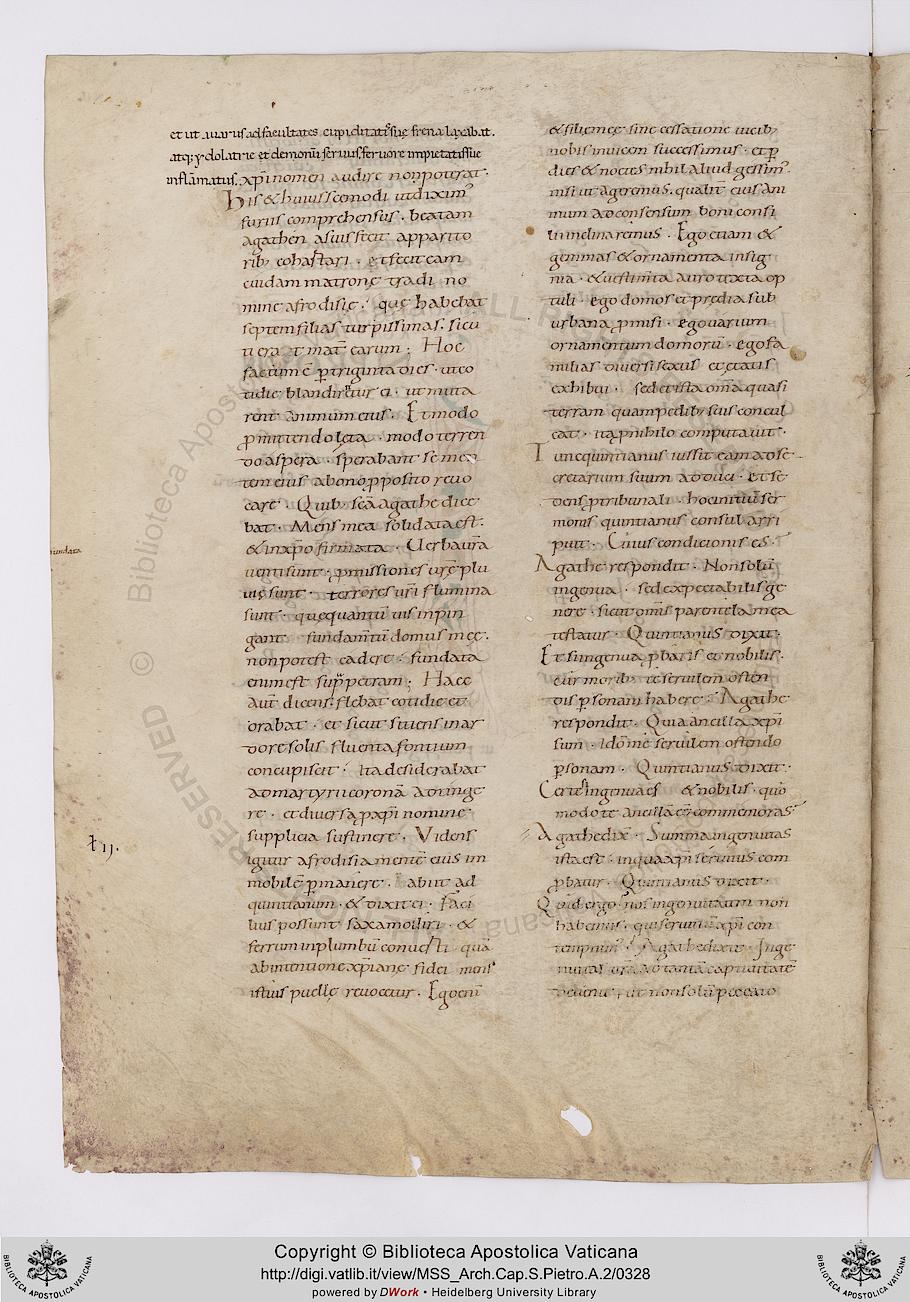 et ut avarus ad facultates cupiditatis sue frena laxabat.
atq; ydolatrie et demonu servus, fervore impietatis sue
inflamatus. xpi nomen audire non poterat.
His & huiuscemodi ut dixim'
furiis comprehensus. beatam
agathen a suis fecit apparito
rib; cohartari. et fecit eam
cuidam matrone tradi no
mine afrodisie. que habebat
septem filias turpissimas. sicu
ti era et mat earum; Hoc
factum e p triginta dies. ut co
tidie blandiretur ei. ut muta
rent animum eius. Et modo
pmittendo leta. modo terren
do aspera. sperabant se men
tem eius a bono pposito revo
care. Quib; sca agathe dice
bat. Mens mea solidata est.
& in xpo firmata. Verba vra
venti sunt. pmissiones vre plu
vie sunt. terrores vri flumina
sunt. que quantu vis inpin
gant. fundamtu domus mee.
non potest cadere. fundata
enim est supra petram; Haec
aut dicens. flebat cotidie et
orabat. et sicut sitiens in ar
dore solis fluenta fontium
concupiscit. Ita desiderabat
ad martyrii corona adtinge
re. et diversa p xpi nomine
supplicia sustinere. Videns
igitur afrodisia mente eius im
mobile pmanere. abiit ad
quintianum. & dixit ei. Faci
lius possunt saxa molliri. &
ferrum in plumbu converti. qua
ab intentione xpiane fidei mens
istius puelle revocetur. Ego eni
& filie mee sine cessatione vicib;
nobis invicem successimus. et p
dies & noctes nihil aliud gessim'.
nisi ut ageremus. qualit eius ani
mum ad consensum boni consi
lii inclinaremus. Ego etiam &
gemmas & ornamenta insig
nia. & vestimta auro texta op
tuli. ego domos et predia sub
urbana pmisi. ego varium
ornamentum domoru. ego fa
milias diversi sexus et etatis
exhibui. sed et ista oma quasi
terram quam pedib; suis concul
cat. ita p nihilo computavit.
Tunc quintianus iussit eam ad se
cretarium suum adduci. et se
dens p tribunali. hoc initiu ser
monis quintianus consul arri
puit. Cuius condicionis es.
Agathe respondit. Non solu
ingenua. sed ex spectabilis ge
nere. sicut omis parentela mea
testatur. Quintianus dixit.
Et si ingenua pbaris et nobilis.
cur morib; te servilem osten
dis psonam habere. Agathe
respondit. Quia ancilla xpi
sum. Ido me servilem ostendo
psonam. Quintianus dixit.
Certe si ingenua es & nobilis. quo
modo te ancilla ee commemoras
Agathe dix. Summa ingenuitas
ista est. in qua xpi servitus com
pbatur. Quintianus dixit.
Quid ergo. nos ingenuitatem non
habemus. qui servitu xpi con
tempnim'. Agathe dixit. Inge
nuitas vra ad tanta captivitate
devenit. ut non solu peccato
fundata
Lc ij.
Copyright © Biblioteca Apostolica Vaticana
http://digi.vatlib.it/view/MSS_Arch.Cap.S.Pietro.A.2/0328
powered by DWork • Heidelberg University Library